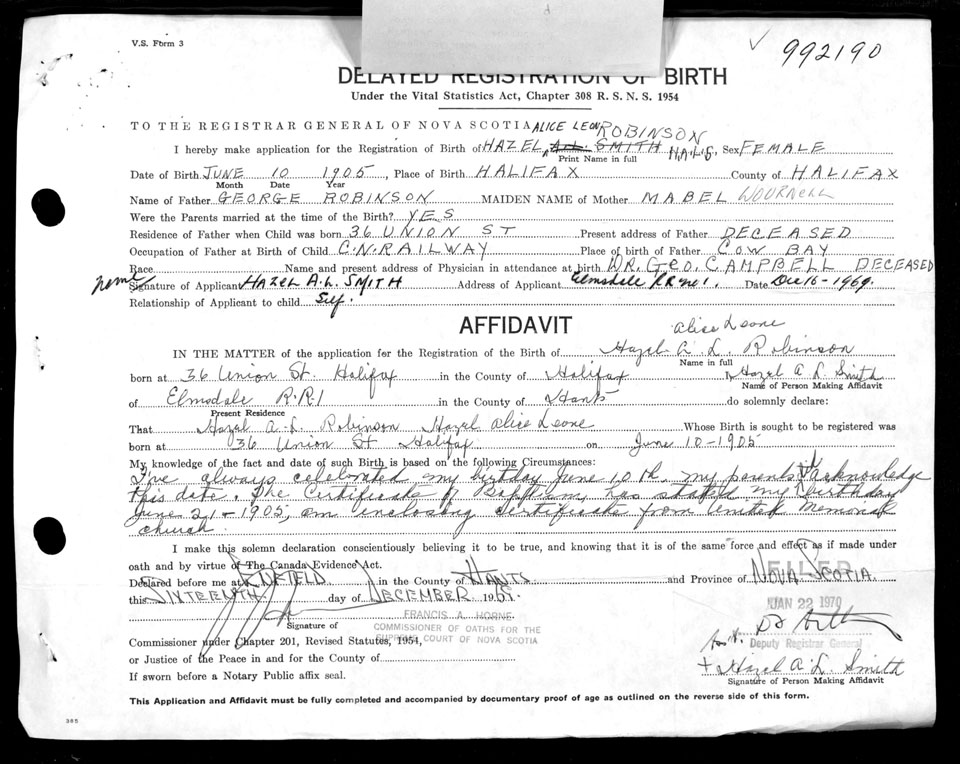 V.S. Form 3
992190
DELAYED REGISTRATION OF BIRTH
Under the Vital Statistics Act, Chapter 308 R. S. N. S. 1954
TO THE REGISTRAR GENERAL OF NOVA SCOTIA ALICE LEON ROBINSON
I hereby make application for the Registration of Birth of HAZEL A.L. SMITH H.A.L.S Sex FEMALE
Print Name in full
Date of Birth JUNE 10 1905, Place of Birth HALIFAX County of HALIFAX
Month Date Year
Name of Father GEORGE ROBINSON MAIDEN NAME of Mother MABEL WOURNELL
Were the Parents married at the time of the Birth? YES
Residence of Father when Child was born 36 UNION ST Present address of Father DECEASED
Occupation of Father at Birth of Child C.N. RAILWAY Place of birth of Father COW BAY
Race Name and present address of Physician in attendance at birth DR. GEO. CAMPBELL DECEASED
Signature of Applicant HAZEL A.L. SMITH Address of Applicant Elmsdale RR no 1. Date Dec 16-1969.
Relationship of Applicant to child Self.
AFFIDAVIT
Alice Leone
IN THE MATTER of the application for the Registration of the Birth of Hazel A L. Robinson
Name in full
born at 36 Union St. Halifax in the County of Halifax I, Hazel A L. Smith
Name of Person Making Affidavit
of Elmsdale R.R1 in the County of Hants do solemnly declare:
Present Residence
That Hazel A.L. Robinson Hazel Alice Leone Whose Birth is sought to be registered was
born at 36 Union St Halifax on June 10-1905
My knowledge of the fact and date of such Birth is based on the following Circumstances:
I've always celebrated my birthday June 10th. my parents acknowledge
this date. The Certificate of Baptism, has stated my birthday
June 21-1905, am inclosing certificate from United Memorial
church.
I make this solemn declaration conscientiously believing it to be true, and knowing that it is of the same force and effect as if made under
oath and by virtue of The Canada Evidence Act.
Declared before me at ENFIELD in the County of HANTS and Province of NOVA SCOTIA
FILED
this SIXTEENTH day of DECEMBER 196
JAN 22 1970
FRANCIS A. HORNE
Signature of
COMMISSIONER OF OATHS FOR THE
Commissioner under Chapter 201, Revised Statutes, 1954, SUPREME COURT OF NOVA SCOTIA
Deputy Registrar General
or Justice of the Peace in and for the County of
+ Hazel A. L. Smith
If sworn before a Notary Public affix seal.
Signature of Person Making Affidavit
This Application and Affidavit must be fully completed and accompanied by documentary proof of age as outlined on the reverse side of this form.
385